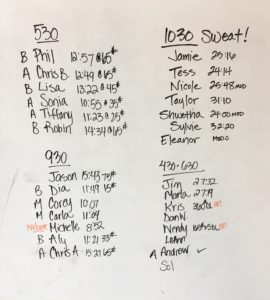 530
B Phil 12:57 @65#
A Chris B 12:49 @65#
B Lisa 13:22 @45#
A Sonia 10:55 @35#
A Tiffany 11:23 @25#
B Robin 14:34 @65#
1030 Sweat!
Jamie 25:16
Tess 24:14
Nicole 25:48 MOD
Taylor 31:10
Shwetha 24:00 MOD
Sylvie 32:20
Eleanor MOD
930
Jason 15:43 75#
B Dia 11:49 15#
M Corey 10:07
M Carla 11:04
Michelle 8:52
B Aly 11:21 33#
A Chris A 15:27 65#
430-630
Jim 27:32
Marla 27:19
Kris
Dan N.
Wendy
A Andrew ✓
Sol